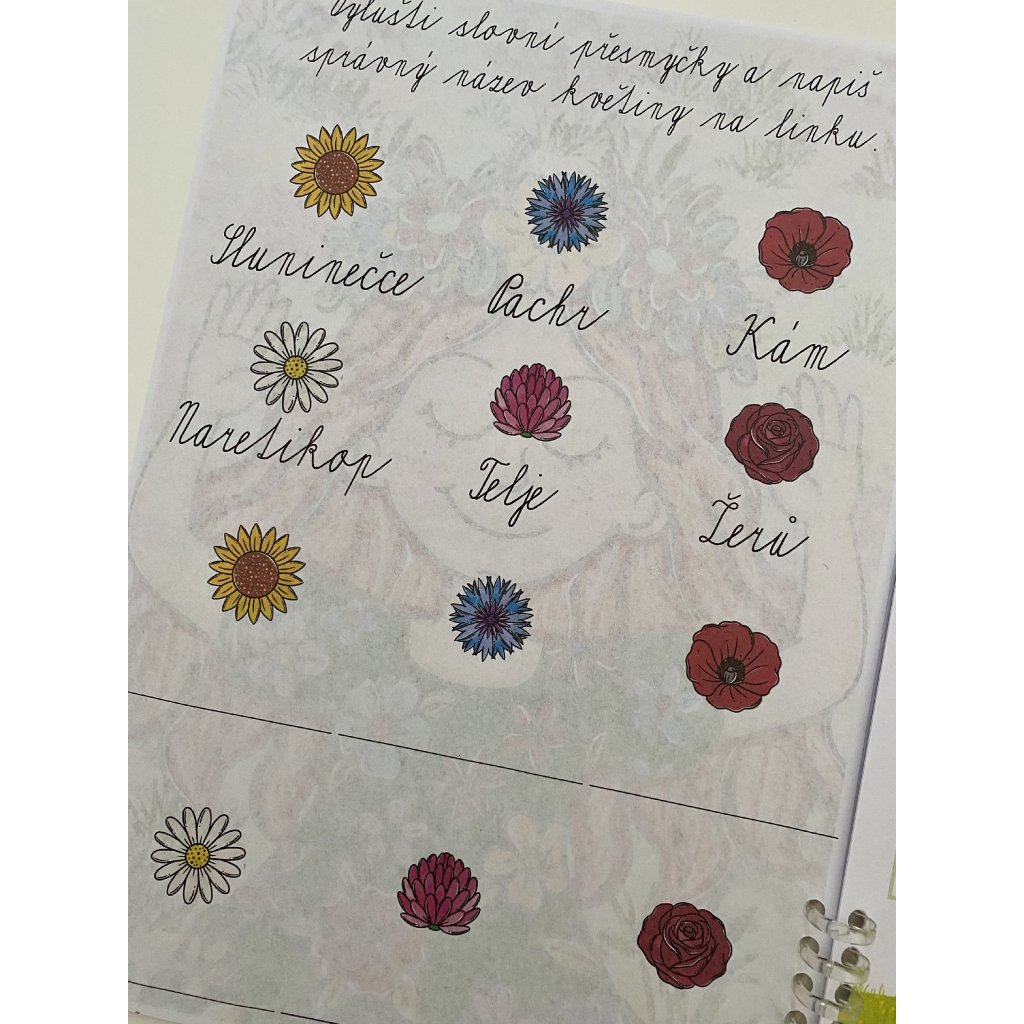 Vylušti slovní přesmyčky a napiš
správný název květiny na linku.
Sluninečce
Pachr
Kám
Naretikop
Telje
Žerů